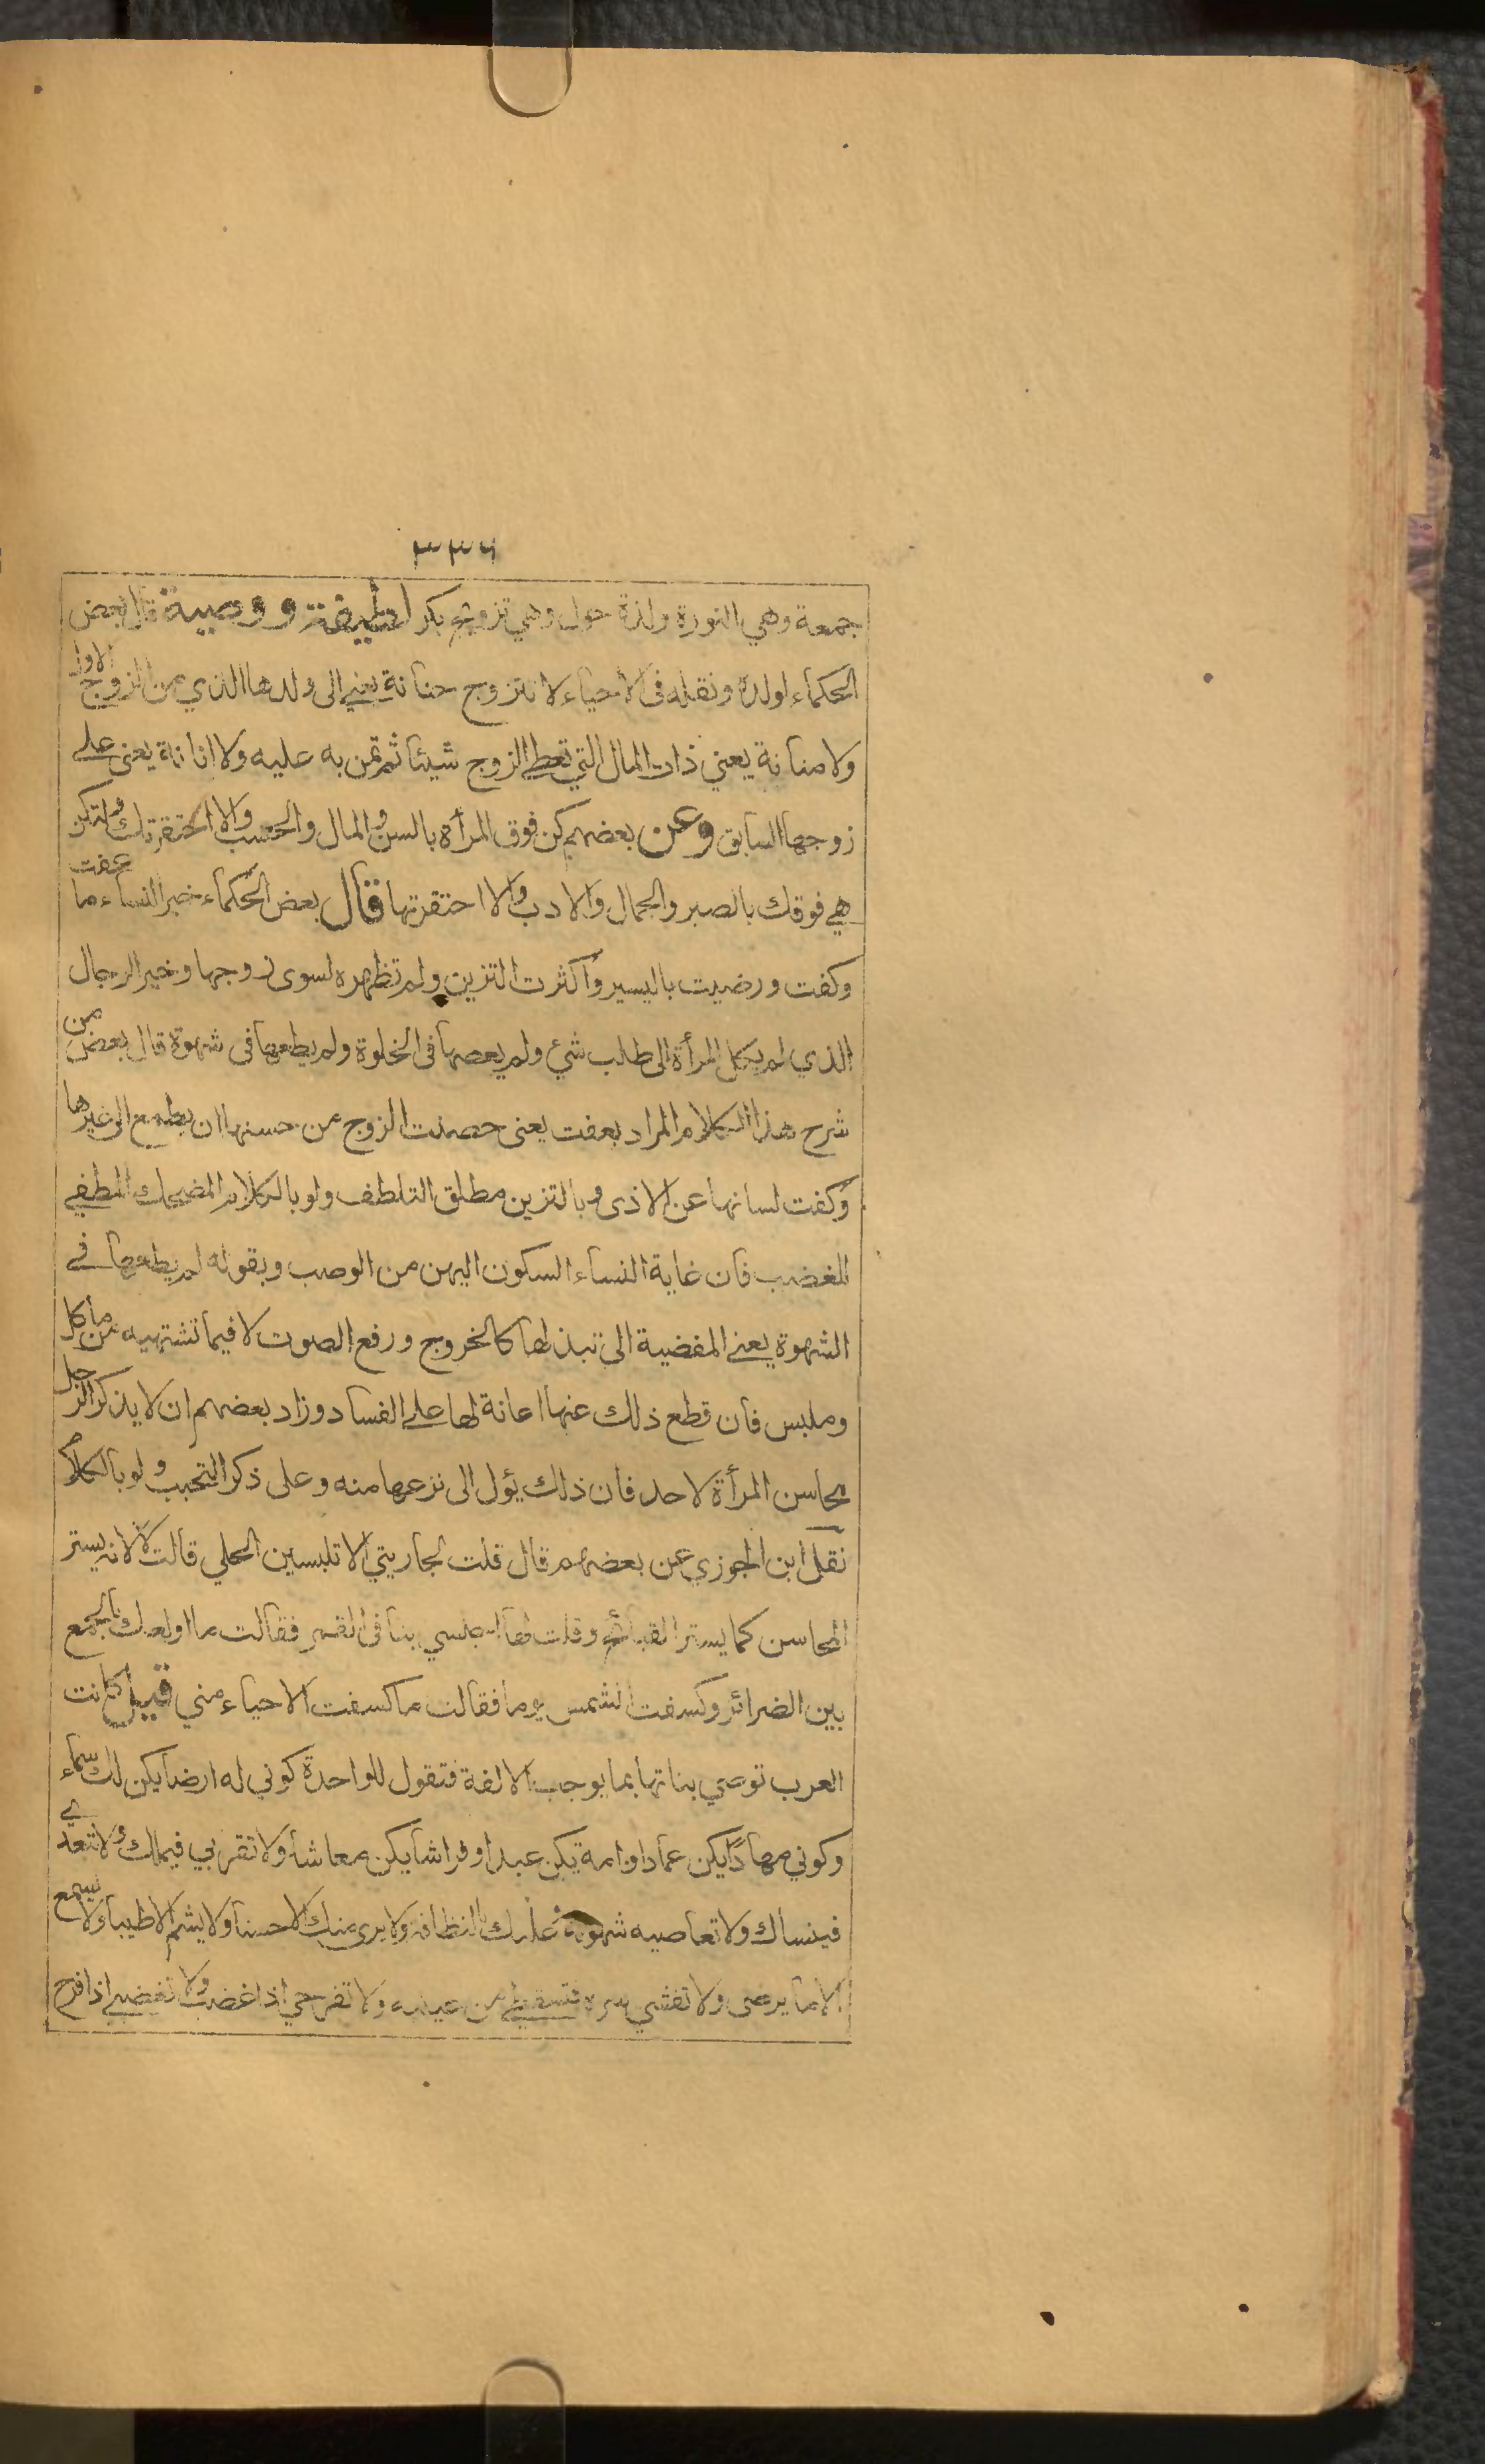 ٣٣٦
جمعة وهي النورة ولذة حول وهي تزويج بكر لطيفة ووصية قال بعض
الحكماء لولده ونقله في الاحياء لا تتزوج حنانة يعني الى ولدها الذي من الزوج الاول
ولا منانة يعني ذات المال التي تعطي الزوج شيئا ثم تمن به عليه ولا انانة يعنى على
زوجها السابق وعن بعضهم كن فوق المرأة بالسن والمال والحسب والا احتقرتك ولتكن
هي فوقك بالصبر والجمال والادب والا احتقرتها قال بعض الحكماء خير النساء ما عفت
وكفت ورضيت باليسير وأكثرت التزين ولم تظهره لسوى زوجها وخير الرجال
الذي لم يكل المرأة الى طلب شيء ولم يعصها في الخلوة ولم يطعها في شهوة قال بعض من
شرح هذا الكلام المراد بعفت يعنى حصنت الزوج من حسنها ان يطمع الى غيرها
وكفت لسانها عن الاذى وبالتزين مطلق التلطف ولو بالكلام المضحك المطفي
للغضب فان غاية النساء السكون اليهن من الوصب وبقوله لم يطعها في
الشهوة يعني المفضية الى تبذلها كالخروج ورفع الصوت لا فيما تشتهيه من مأكل
وملبس فان قطع ذلك عنها اعانة لها على الفساد وزاد بعضهم ان لا يذكر الرجل
محاسن المرأة لاحد فان ذلك يؤل الى نزعها منه وعلى ذكر التحبب ولو بالكلام
نقل ابن الجوزي عن بعضهم قال قلت لجاريتي الا تلبسين الحلي قالت لا لانه يستر
المحاسن كما يستر القبائح وقلت لها اجلسي بنا في القمر فقالت ما اولعك بالجمع
بين الضرائر وكسفت الشمس يوما فقالت ما كسفت الا حياء مني قيل كانت
العرب توصي بناتها بما يوجب الالفة فتقول للواحدة كوني له ارضا يكن لك سماء
وكوني مهادًا يكن عمادا وامة يكن عبدا وفراشا يكن معاشا ولا تقربي فيملك ولا تبعدي
فينساك ولا تعاصيه شهوته عليك بالنظافة ولا يرى منك الا حسنا ولا يشم الا طيبا ولا يسمع
الا ما يرضى ولا تفشي سره فتسقطي من عينه ولا تفرحي اذا غضب ولا تغضبي اذا فرح